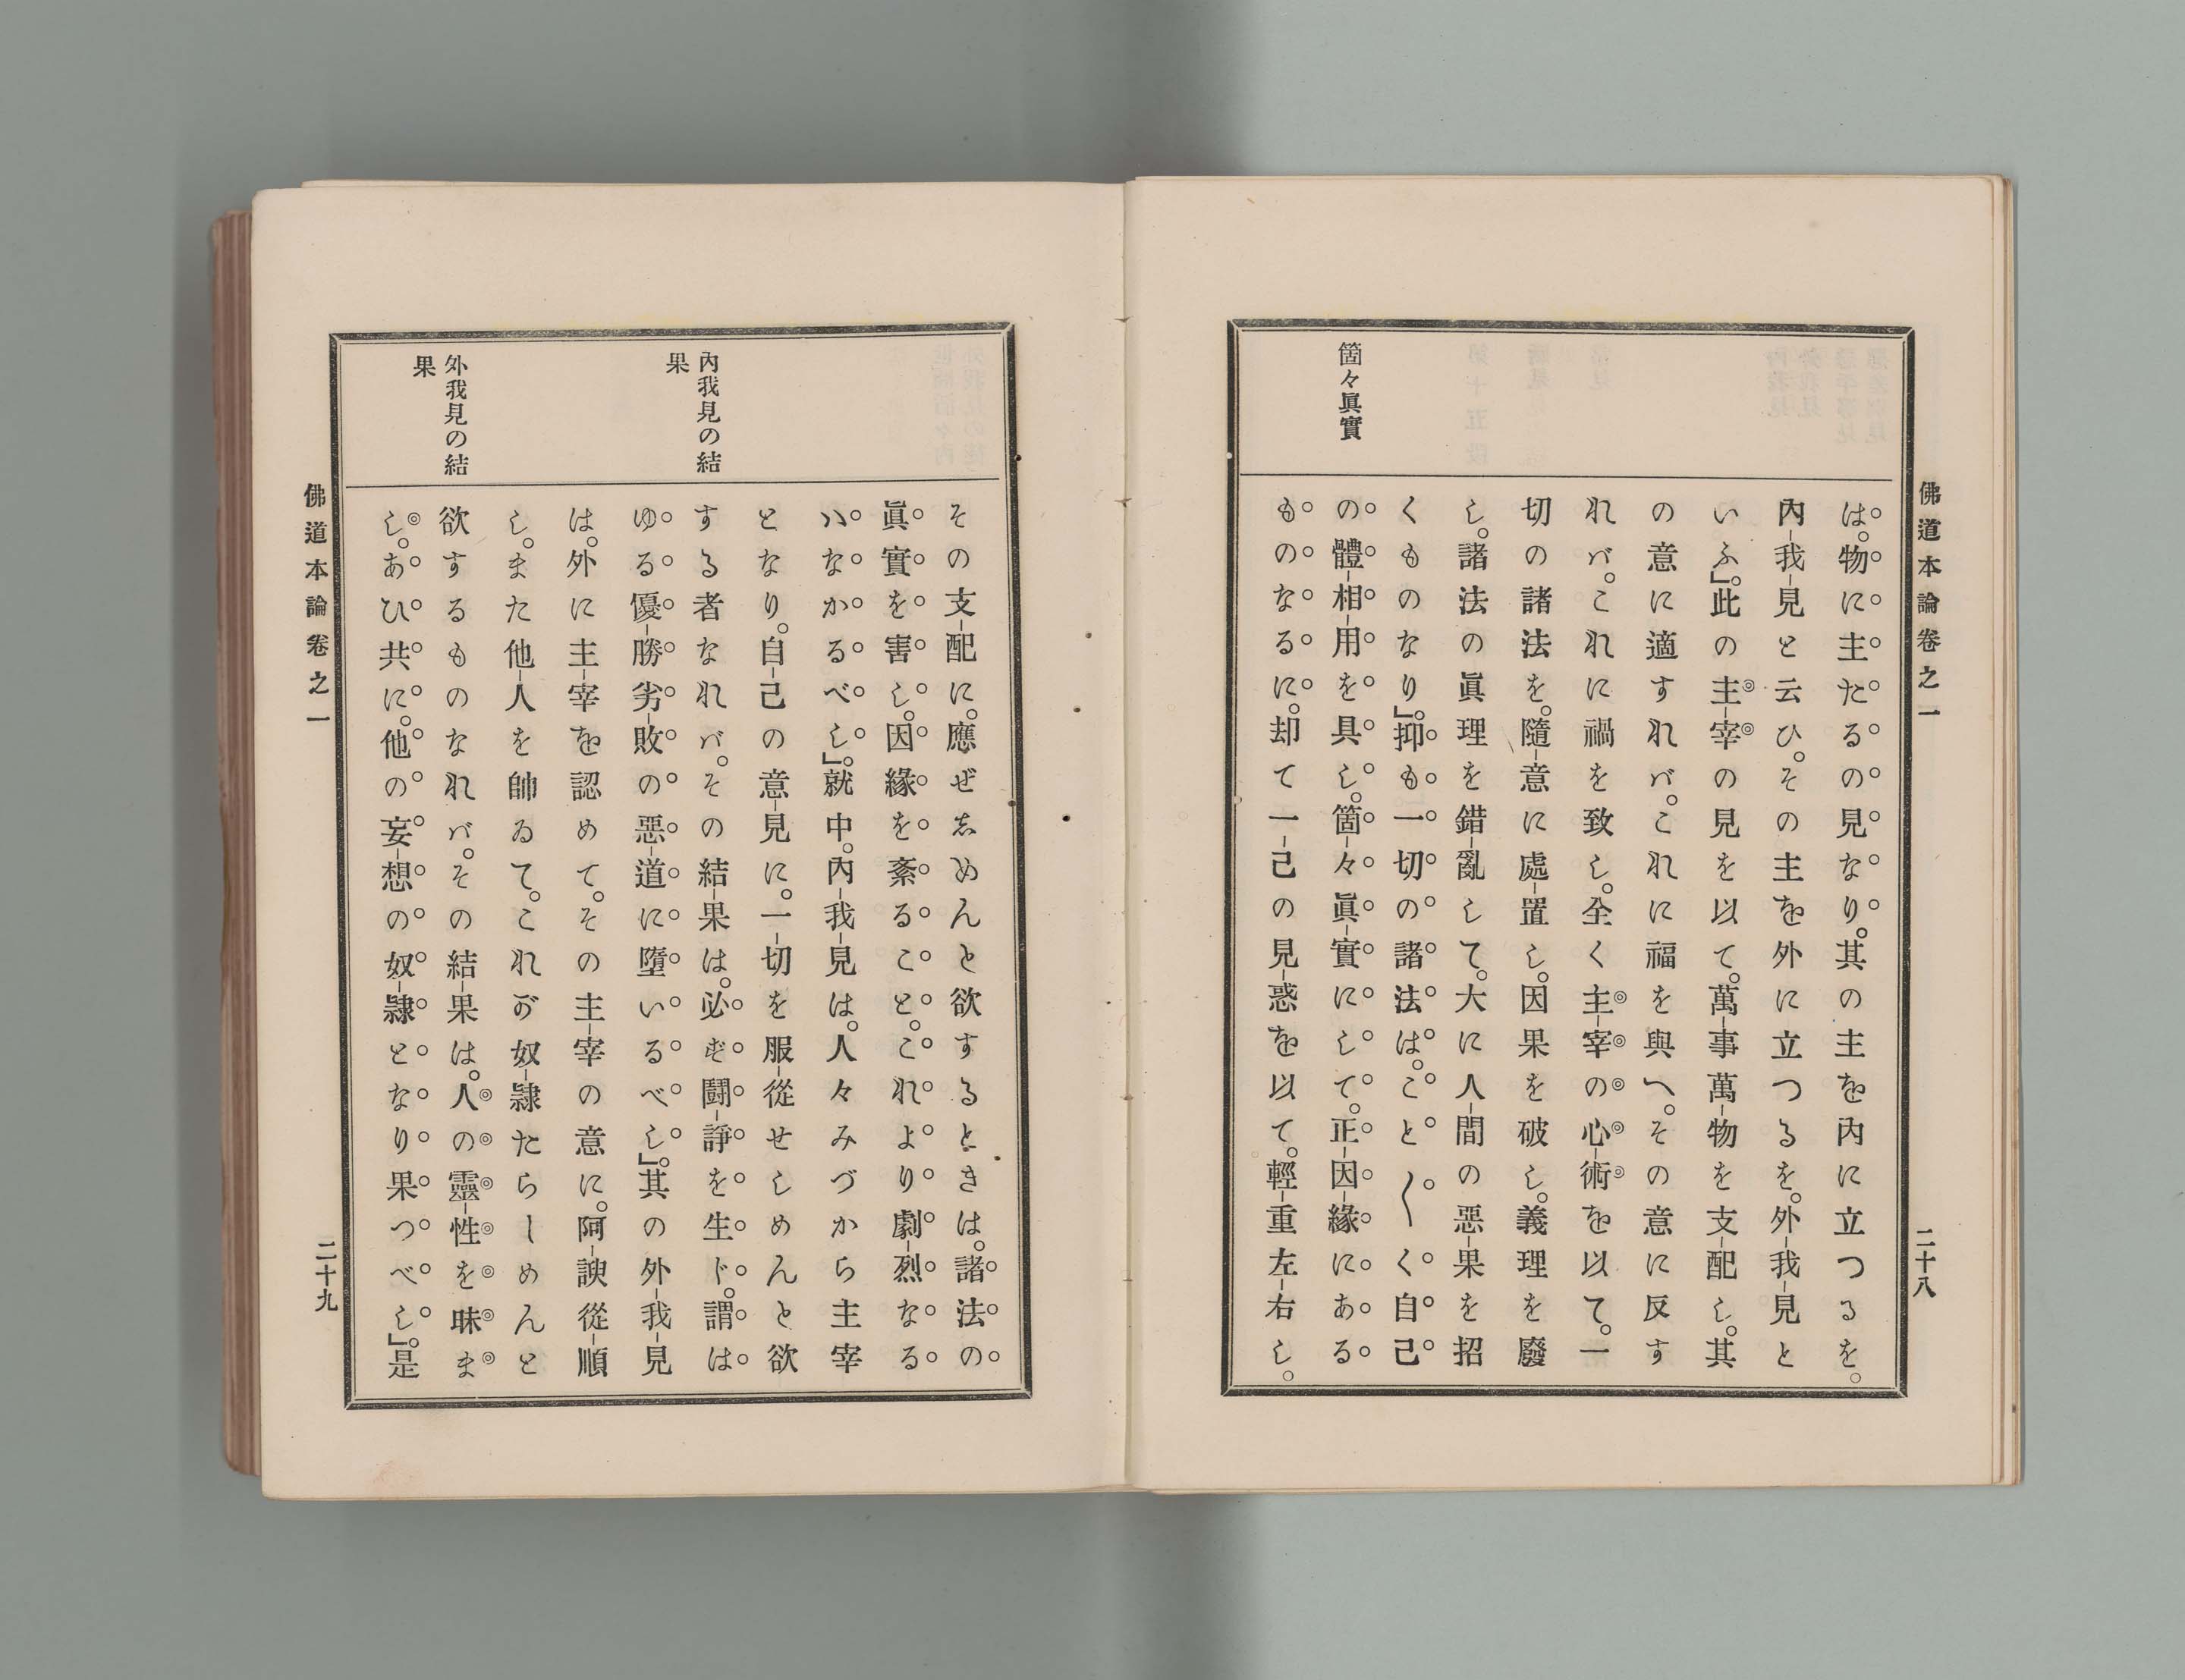 佛道本論卷之一
二十八
箇々眞實
は。物に主たるの見なり。其の主を内に立つるを。
内我見と云ひ。その主を外に立つるを。外我見と
いふ」。此の主宰の見を以て。萬事萬物を支配し。其
の意に適すれバ。これに福を與へ。その意に反す
れバ。これに禍を致し。全く主宰の心術を以て。一
切の諸法を。隨意に處置し。因果を破し。義理を廢
し。諸法の眞理を錯亂して。大に人間の惡果を招
くものなり」。抑も一切の諸法は。こと〱く自己
の體相用を具し。箇々眞實にして。正因緣にある
ものなるに。却て一己の見惑を以て。輕重左右し。
内我見の結
果
外我見の結
果
その支配に。應ぜしめんと欲するときは。諸法の
眞實を害し。因緣を紊ること。これより劇烈なる
ハなかるべし」。就中。内我見は。人々みづから主宰
となり。自己の意見に。一切を服從せしめんと欲
する者なれバ。その結果は。必ず鬪諍を生ド。謂は
ゆる優勝劣敗の惡道に墮いるべし」。其の外我見
は。外に主宰を認めて。その主宰の意に。阿諛從順
し。また他人を帥ゐて。これが奴隷たらしめんと
欲するものなれバ。その結果は。人の靈性を昧ま
し。あひ共に。他の妄想の奴隷となり果つべし」。是
佛道本論卷之一
二十九